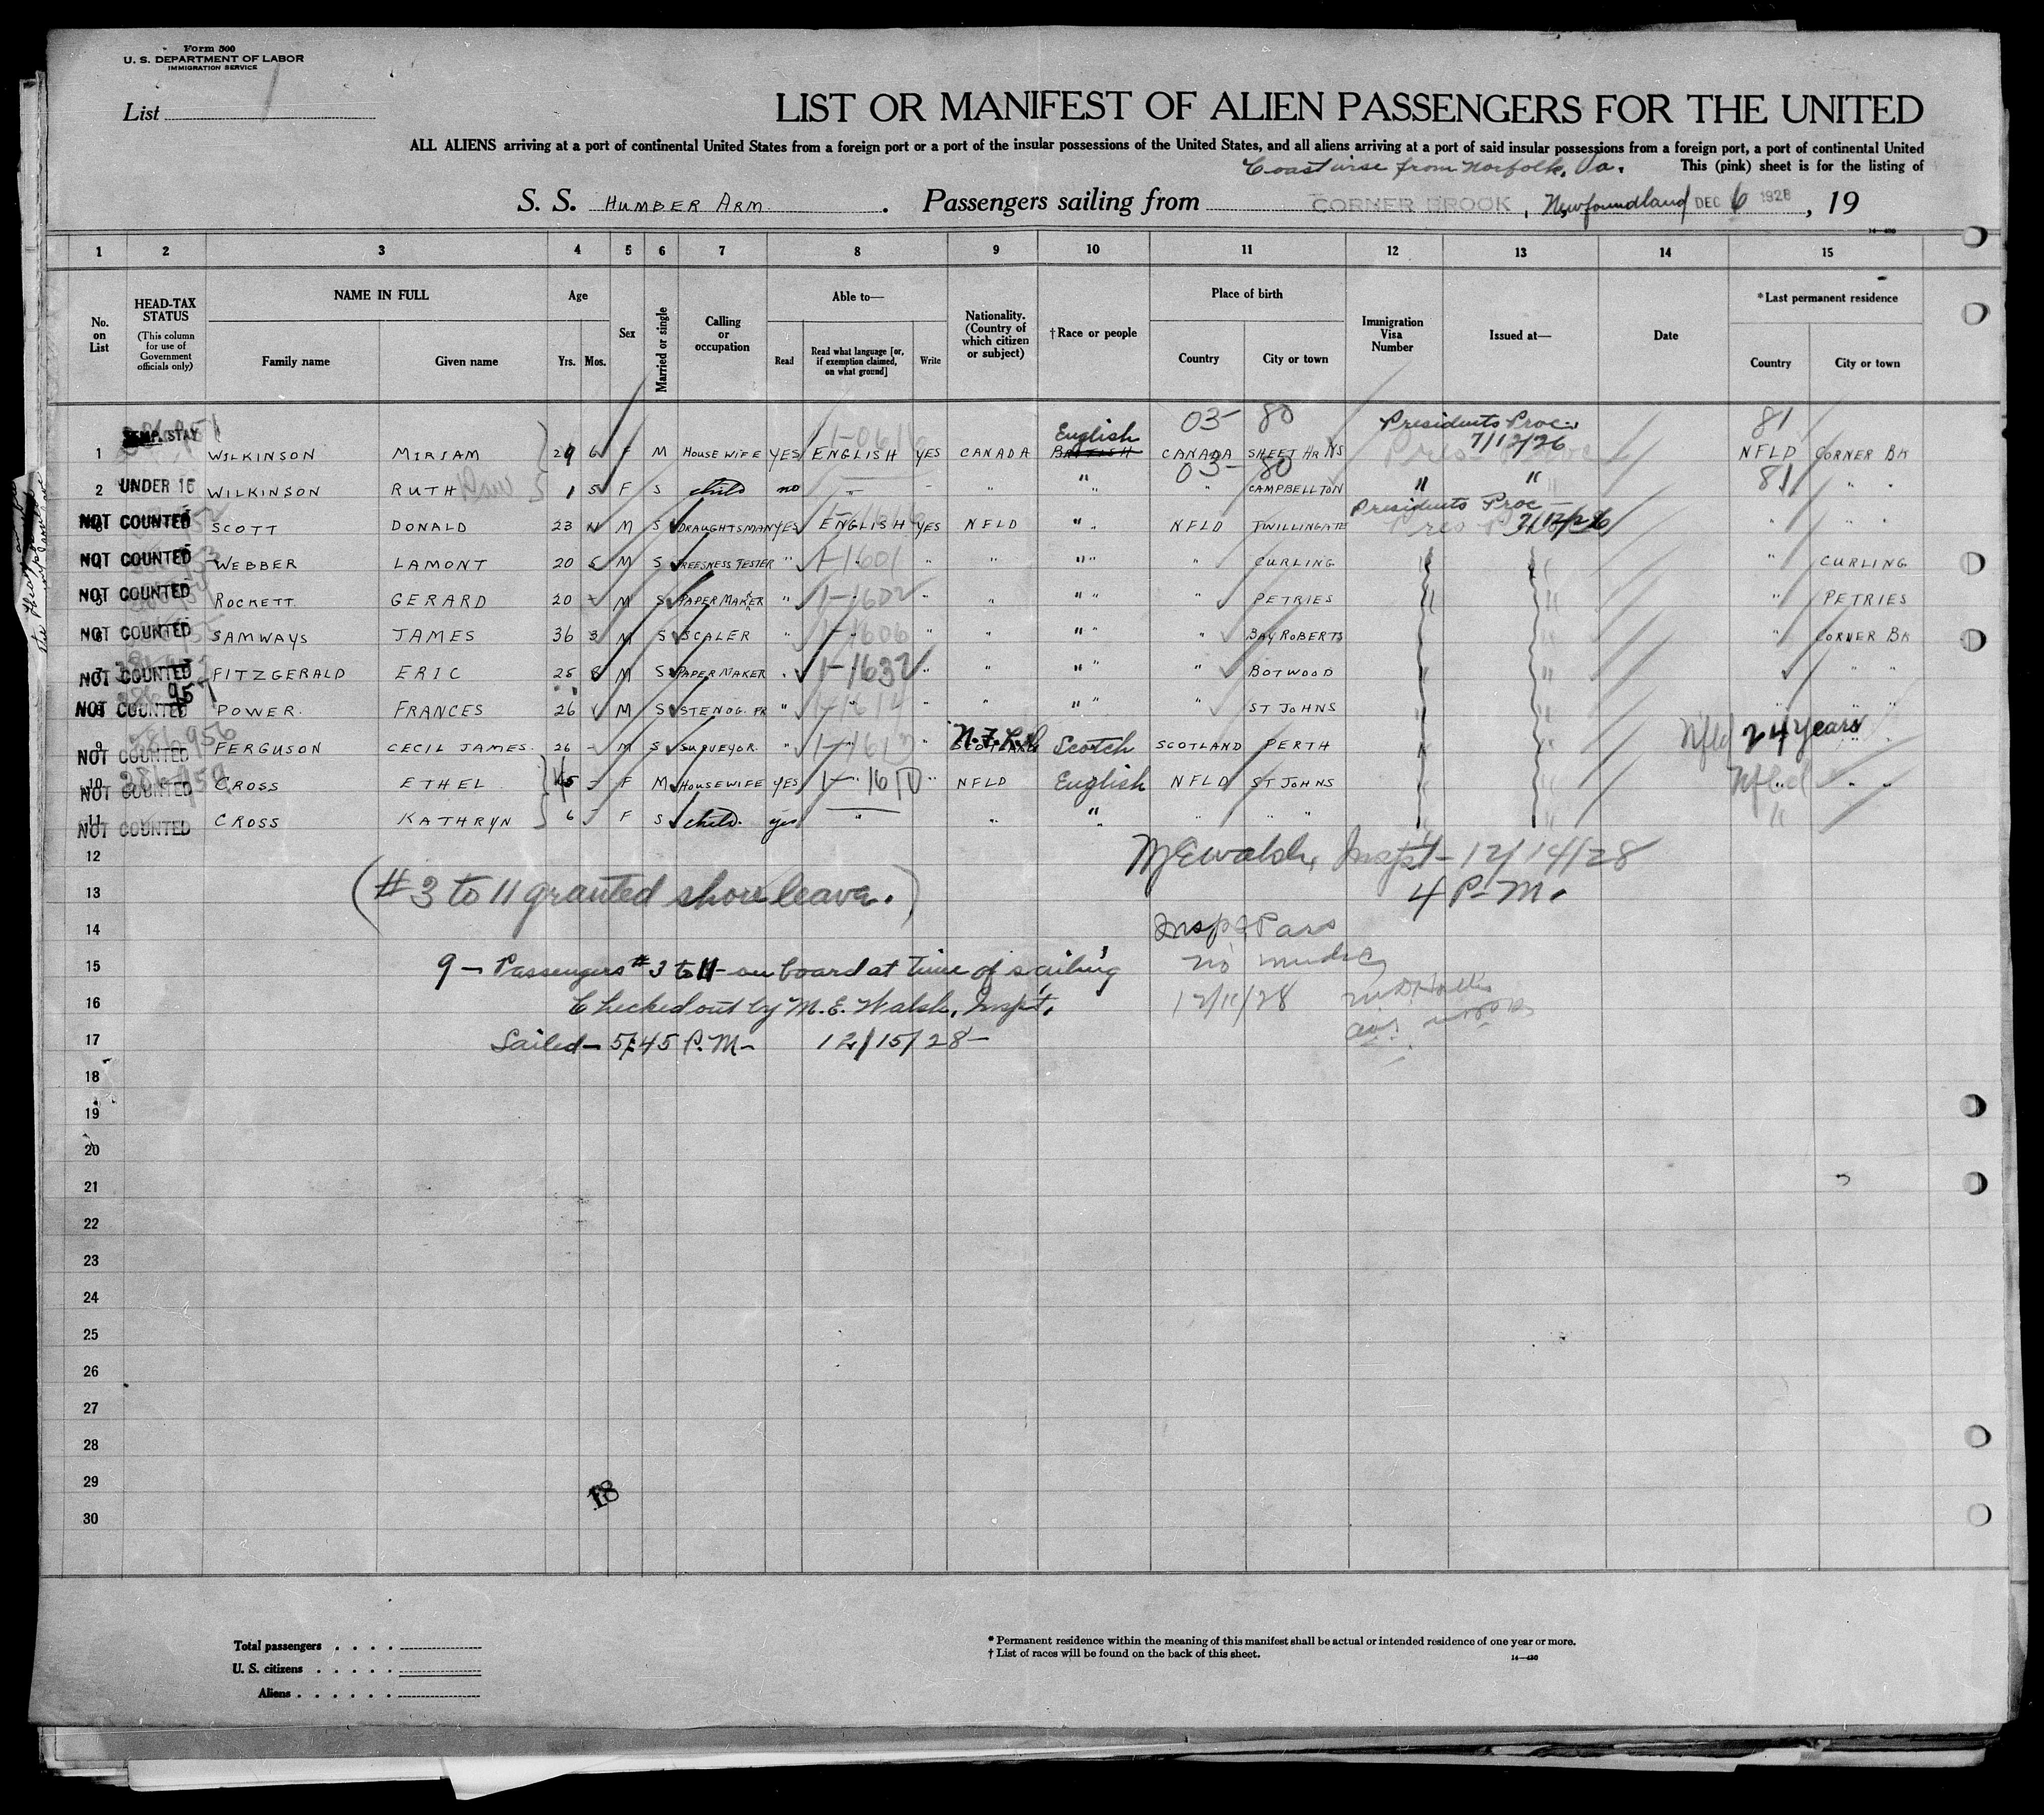 Form 500
U. S. DEPARTMENT OF LABOR
IMMIGRATION SERVICE
List
LIST OR MANIFEST OF ALIEN PASSENGERS FOR THE UNITED
ALL ALIENS arriving at a port of continental United States from a foreign port or a port of the insular possessions of the United States, and all aliens arriving at a port of said insular possessions from a foreign port, a port of continental United
Coastwise from Norfolk, Va. This (pink) sheet is for the listing of
S. S. HUMBER ARM. Passengers sailing from CORNER BROOK, Newfoundland DEC 6 1928, 19
14—430
1 2 3 4 5 6 7 8 9 10 11 12 13 14 15
No. on List
HEAD-TAX STATUS (This column for use of Government officials only)
NAME IN FULL Family name Given name
Age Yrs. Mos.
Sex
Married or single
Calling or occupation
Able to— Read Read what language [or, if exemption claimed, on what ground] Write
Nationality. (Country of which citizen or subject)
† Race or people
Place of birth Country City or town
Immigration Visa Number
Issued at—
Date
* Last permanent residence Country City or town
03- 80 Presidents Proc. 81
TEMP. STAY English 7/12/26
1 WILKINSON MIRIAM 29 6 F M HOUSEWIFE YES ENGLISH YES CANADA BRITISH CANADA SHEET HR NS NFLD CORNER BK
03- 80 81
2 UNDER 16 WILKINSON RUTH 1 5 F S child no " - " " " CAMPBELLTON " " " "
Presidents Proc
3 NOT COUNTED SCOTT DONALD 23 M S DRAUGHTSMAN YES ENGLISH YES NFLD " NFLD TWILLINGATE 7/12/26 " "
4 NOT COUNTED WEBBER LAMONT 20 5 M S FREENESS TESTER " 1-1601 " " " " CURLING " CURLING
5 NOT COUNTED ROCKETT GERARD 20 - M S PAPER MAKER " 1-1602 " " " " PETRIES " PETRIES
6 NOT COUNTED SAMWAYS JAMES 36 3 M S SCALER " 1-1606 " " " " BAY ROBERTS " CORNER BK
7 NOT COUNTED FITZGERALD ERIC 25 8 M S PAPER MAKER " 1-1632 " " " " BOTWOOD " "
957
8 NOT COUNTED POWER. FRANCES 26 M S STENOG. " 1-1614 " " " " ST JOHNS " "
9 NOT COUNTED FERGUSON CECIL JAMES. 26 - M S SURVEYOR. " " N.F.L.d Scotch SCOTLAND PERTH Nfld 24 years
10 NOT COUNTED CROSS ETHEL 45 - F M HOUSEWIFE YES " NFLD English NFLD ST JOHNS Nfld " "
11 NOT COUNTED CROSS KATHRYN 6 - F S child. yes " " " " " "
12 M E Walsh, Inspt - 12/14/28
13 (#3 to 11 granted shore leave.) 4 P. M.
14 Insp & Pass
15 9 - Passengers #3 to 11 - on board at time of sailing no
16 Checked out by M. E. Walsh, Inspt. 12/11/28
17 Sailed - 5:45 P. M - 12/15/28 -
18
19
20
21
22
23
24
25
26
27
28
29
30
18
Total passengers
U. S. citizens
Aliens
* Permanent residence within the meaning of this manifest shall be actual or intended residence of one year or more.
† List of races will be found on the back of this sheet.
14—430